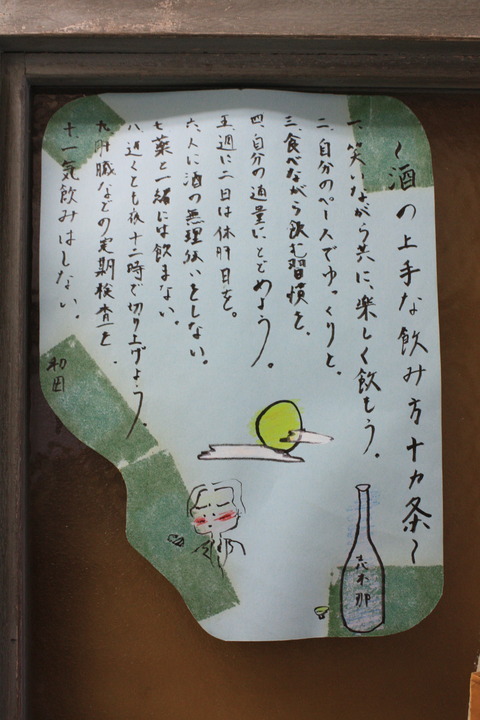 ～酒の上手な飲み方十カ条～
一、笑いながら共に、楽しく飲もう。
二、自分のペースでゆっくりと。
三、食べながら飲む習慣を。
四、自分の適量にとどめよう。
五、週に二日は休肝日を。
六、人に酒の無理強いをしない。
七、薬と一緒には飲まない。
八、遅くとも夜十二時で切り上げよう。
九、肝臓などの定期検査を。
十一気飲みはしない。
和田